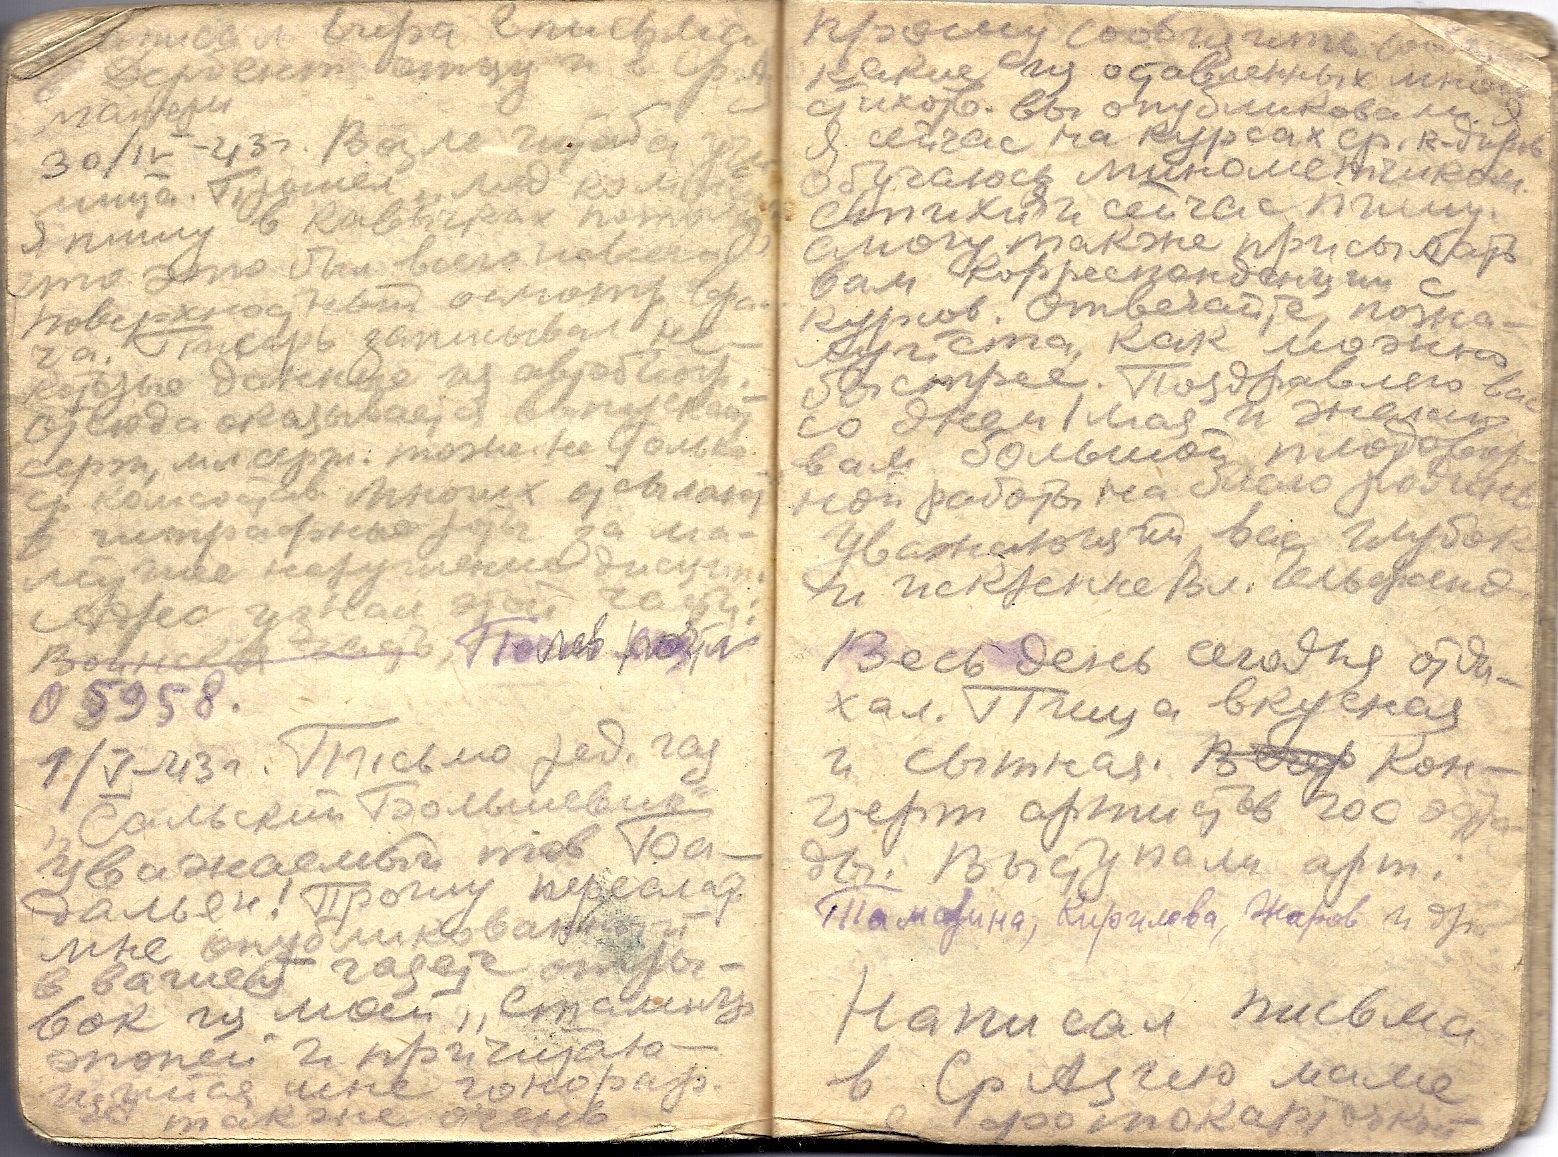 написал вчера 2 письма
в Дербент отцу и в Ср. А.
матери
30/IV-43г. Возле штаба учи
лища. Прошел „мед комис
Я пишу в кавычках потому
что это был всего навсего
поверхностный осмотр вра-
ча. Писарь записывал не-
которые данные из автобиогр.
Отсюда оказывается выпускают
серж, мл серж. тоже. Не только
ср. комсостав. Многих отсылают
в штрафные за ма-
лейшие нарушения дисцип.
Адрес узнал этой части:
Воинская часть, Полев почт
05958.
1/V-43г. Письмо ред. газ
„Сальский Большевик"
Уважаемый тов Ба-
дальян! Прошу переслать
мне опубликованный
в вашей газете отры-
вок из моей „Сталингр
эпопеи" и причитаю-
щийся мне гонорар.
также очень
прошу сообщите
какие из оставленных мной
стихотв. вы опубликовали. Я
Я сейчас на курсах ср. к-диров
обучаюсь минометчиком.
Стихи и сейчас пишу.
Смогу также присылать
вам корреспонденции с
курсов. Отвечайте, пожа-
луйста, как можно
быстрее. Поздравляю вас
со днем 1 мая и желаю
вам большой плодотвор
ной работы на благо родины
Уважающий вас глубоко
и искренне Вл. Гельфанд
Весь день сегодня отды-
хал. Пища вкусная
и сытная. Кон-
церт артистов гос эстра-
ды. Выступали арт.
Тамарина, Кирилова, Жаров и др
Написал письма
в Ср Азию маме
с фотокарточкой